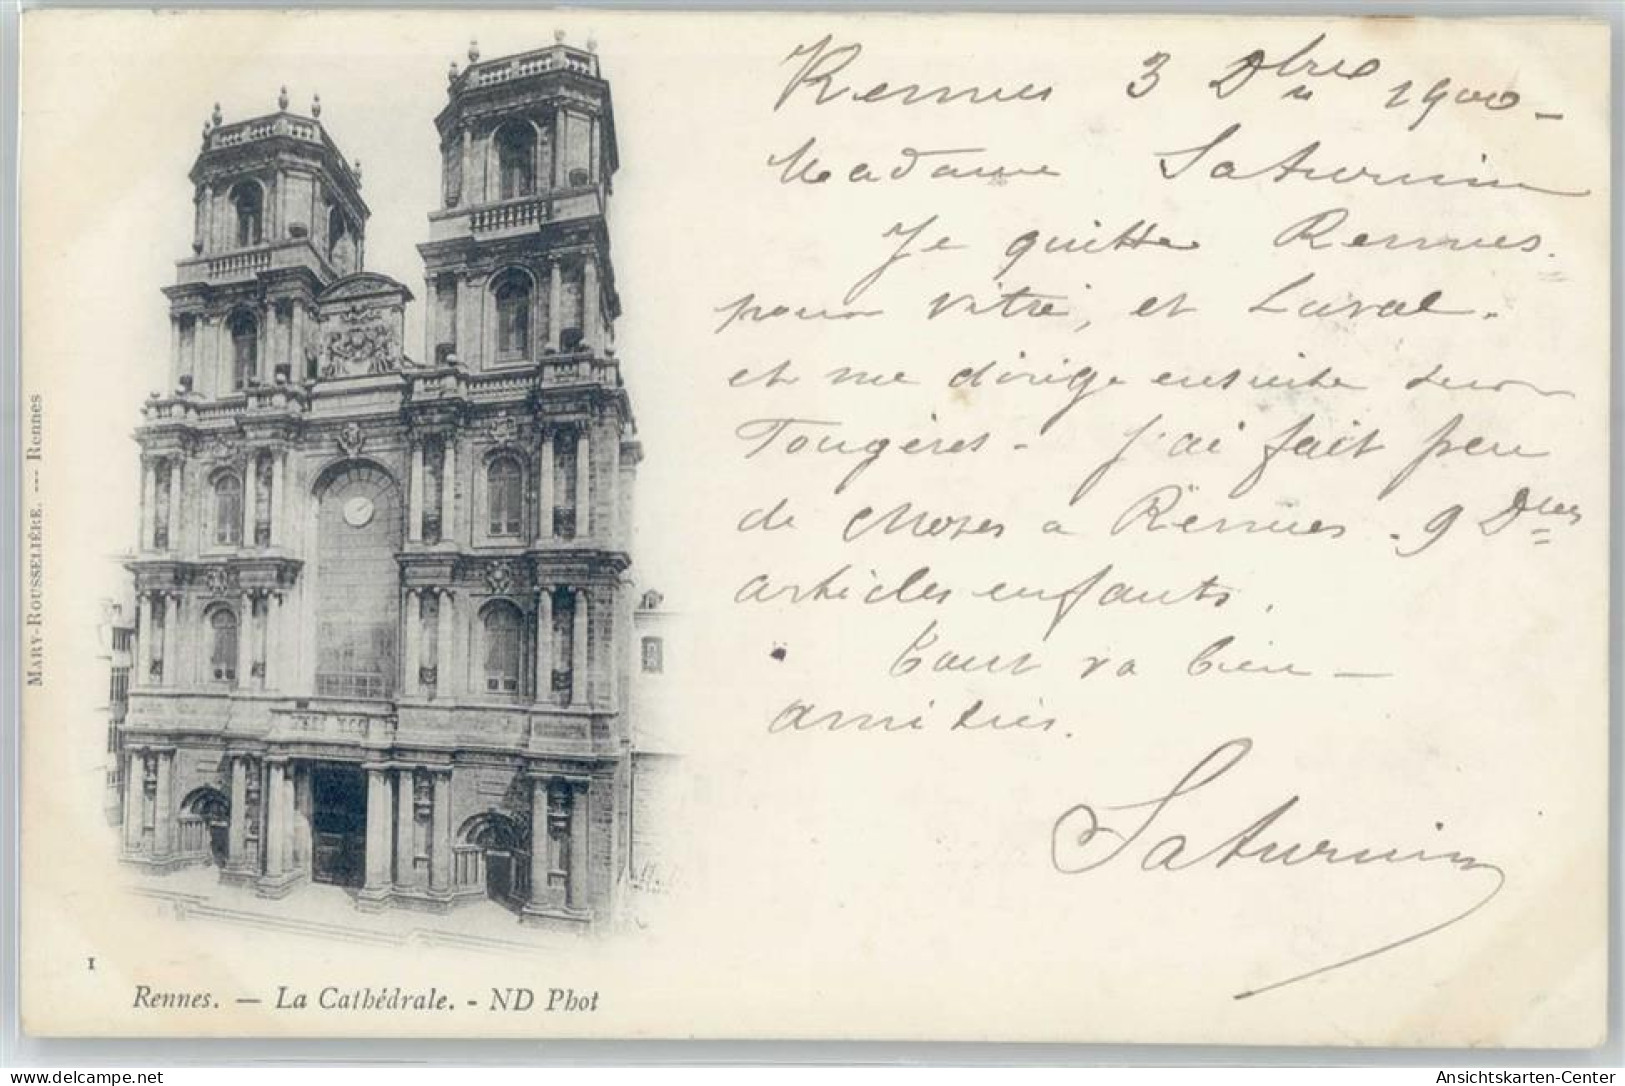 Rennes 3 Dbre 1900 -
Madame Saturnin
Je quitte Rennes.
pour Vitré, et Laval.
et me dirige ensuite sur
Fougères - J'ai fait peu
de choses a Rennes - 9 Dnes
articles enfants.
Tout va bien -
amitiés.
Saturnin
MARY-ROUSSELIÈRE. --- Rennes
1
Rennes. — La Cathédrale. - ND Phot
delcampe.net
Ansichtskarten-Center